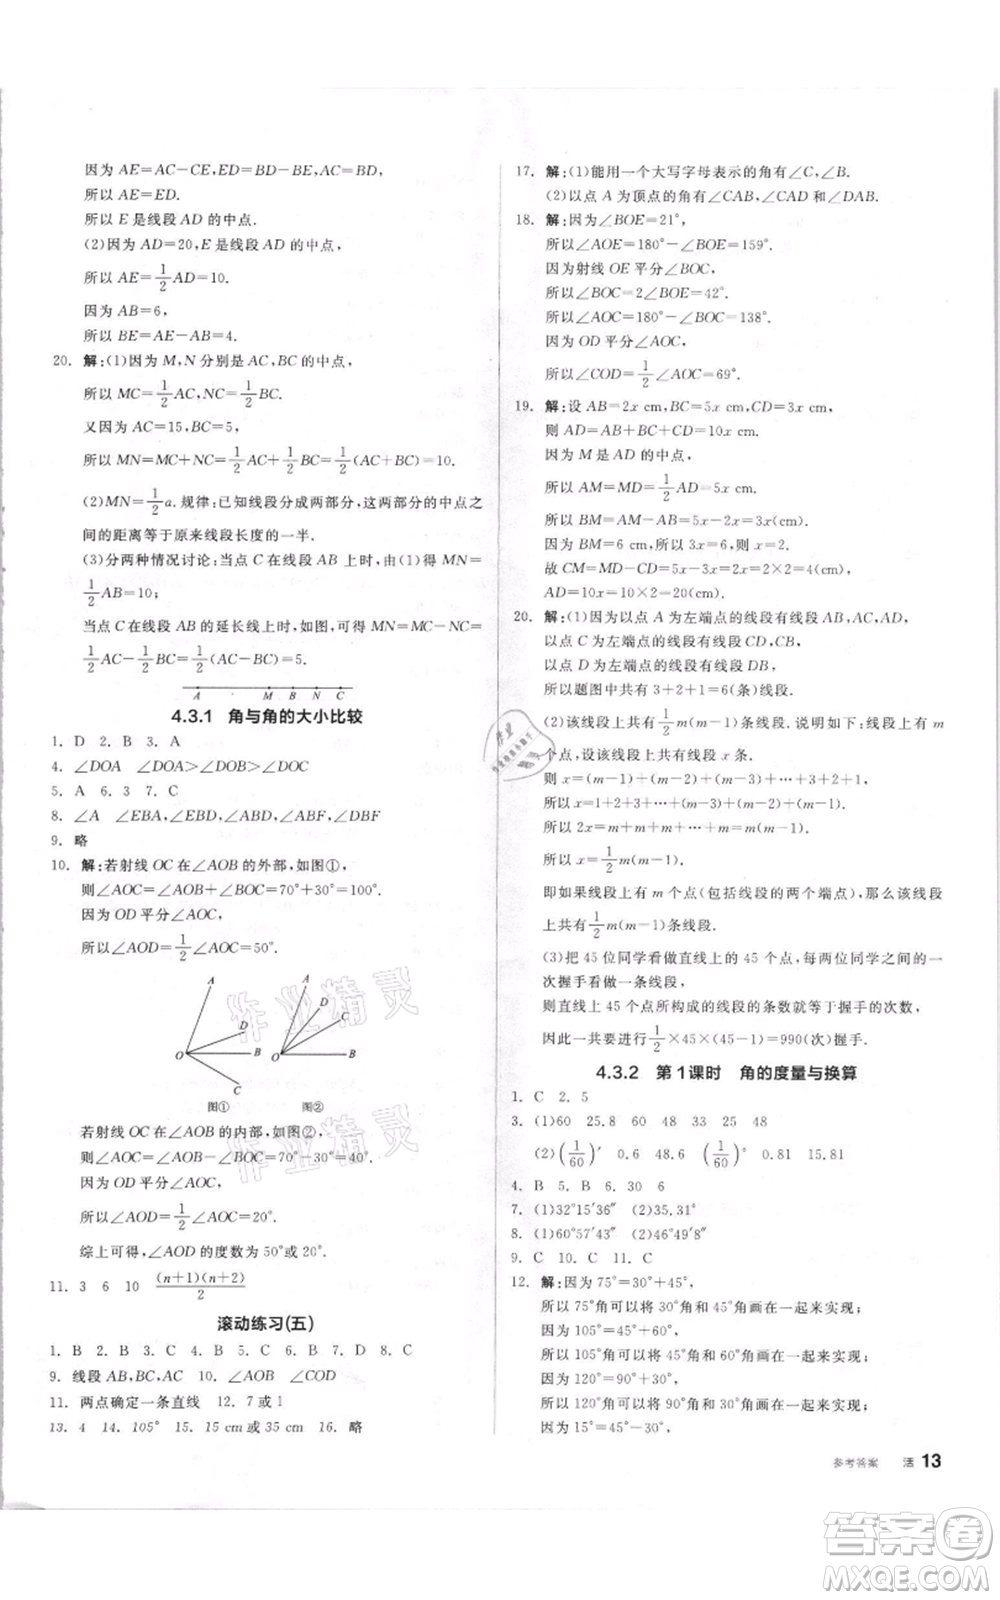 因为 AE=AC-CE,ED=BD-BE,AC=BD,
所以 AE=ED.
所以 E 是线段 AD 的中点.
(2)因为 AD=20,E 是线段 AD 的中点,
所以 AE=1/2AD=10.
因为 AB=6,
所以 BE=AE-AB=4.
20. 解:(1)因为 M,N 分别是 AC,BC 的中点,
所以 MC=1/2AC,NC=1/2BC.
又因为 AC=15,BC=5,
所以 MN=MC+NC=1/2AC+1/2BC=10.
(2)MN=1/2a. 规律:已知线段分成两部分,这两部分的中点之
间的距离等于原来线段长度的一半.
(3)分两种情况讨论:当点 C 在线段 AB 上时,由(1)得 MN=
1/2AB=10;
当点 C 在线段 AB 的延长线上时,如图,可得 MN=MC-NC=
1/2AC-1/2BC=1/2(AC-BC)=1/2AB=10.
A M B N C
4.3.1 角与角的大小比较
1. D 2. B 3. A
4. ∠DOA ∠DOA>∠DOB>∠DOC
5. A 6. 3 7. C
8. ∠A ∠EBA,∠EBD,∠ABD,∠ABF,∠DBF
9. 略
10. 解:若射线 OC 在∠AOB 的外部,如图①,
则∠AOC=∠AOB+∠BOC=70°+30°=100°.
因为 OD 平分∠AOC,
所以∠AOD=1/2∠AOC=50°.
A D O B C
A D C O B
图① 图②
若射线 OC 在∠AOB 的内部,如图②,
则∠AOC=∠AOB-∠BOC=70°-30°=40°.
因为 OD 平分∠AOC,
所以∠AOD=1/2∠AOC=20°.
综上可得,∠AOD 的度数为 50°或 20°.
11. 3 6 10 (n+1)(n+2)/2
滚动练习(五)
1. B 2. B 3. C 4. B 5. B 6. D 7. D 8. C
9. 线段 AB,BC,AC 10. ∠AOB ∠COD
11. 两点确定一条直线 12. 7 或 1
13. 4 14. 105° 15. 15 cm 或 30 cm 16. 略
17. 解:(1)能用一个大写字母表示的角有∠C,∠B.
(2)以点 A 为顶点的角有∠CAB,∠CAD,∠DAB.
18. 解:因为∠BOE=21°,
所以∠AOE=180°-∠BOE=159°.
因为射线 OE 平分∠BOC,
所以∠BOC=2∠BOE=42°.
所以∠AOC=180°-∠BOC=138°.
因为 OD 平分∠AOC,
所以∠COD=1/2∠AOC=69°.
19. 解:设 AB=2x cm,BC=5x cm,CD=3x cm,
则 AD=AB+BC+CD=10x cm.
因为 M 是 AD 的中点,
所以 AM=MD=1/2AD=5x cm.
所以 BM=AM-AB=5x-2x=3x(cm).
因为 BM=6 cm,所以 3x=6,则 x=2.
故 CM=MD-CD=5x-3x=2x=2×2=4(cm),
AD=10x=10×2=20(cm).
20. 解:(1)因为以点 A 为左端点的线段有线段 AB,AC,AD,
以点 C 为左端点的线段有线段 CD,CB,
以点 D 为左端点的线段有线段 DB,
所以题图中共有 3+2+1=6(条)线段.
(2)该线段上共有1/2m(m-1)条线段. 说明如下:线段上有 m
个点,设该线段上共有线段 x 条.
则 x=(m-1)+(m-2)+(m-3)+…+3+2+1,
所以 x=1+2+3+…+(m-3)+(m-2)+(m-1).
所以 2x=m+m+…+m=m(m-1).
所以 x=1/2m(m-1).
即如果线段上有 m 个点(包括线段的两个端点),那么该线段
上共有1/2m(m-1)条线段.
(3)把 45 位同学看做直线上的 45 个点,每两位同学之间的一
次握手看做一条线段,
则直线上 45 个点所构成的线段的条数就等于握手的次数,
因此一共要进行1/2×45×(45-1)=990(次)握手.
4.3.2 第 1 课时 角的度量与换算
1. C 2. 5
3. (1)60 25.8 60 48 33 60 48
(2)(1/60)′ 0.6 48.6 (1/60)° 0.81 15.81
4. B 5. B 6. 30 6
7. (1)32°15′36″ (2)23.31°
8. (1)60°57′43″ (2)46°49′8″
9. C 10. C 11. C
12. 解:因为 75°=30°+45°,
所以 75°角可以将 30°角和 45°角画在一起来实现;
因为 105°=45°+60°,
所以 105°角可以将 45°角和 60°角画在一起来实现;
因为 120°=90°+30°,
所以 120°角可以将 90°角和 30°角画在一起来实现;
因为 15°=45°-30°,
参考答案 活 13
作业精灵
作业精灵
答案卷
MXQE.COM